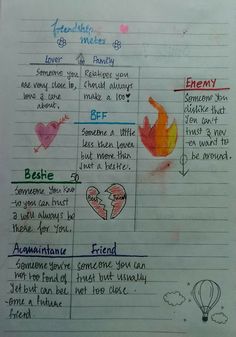 friendship
meter
Lover
Family
Someone you
are verry close to,
love & care
about.
Relatives you
Should always
make a 100!
Enemy
Someone you
dislike that
you can't
trust & nev
-er want to
be around.
BFF
Someone a little
less then Lover
but more than
Just a bestie.
Bestie
50
Someone you know
you can trust
& will always be
there for you.
Best
Friend
Acquaintance
Friend
Someone you're
not too fond of
yet but can bec
-ome a future
friend.
someone you can
trust but usually
not too close.